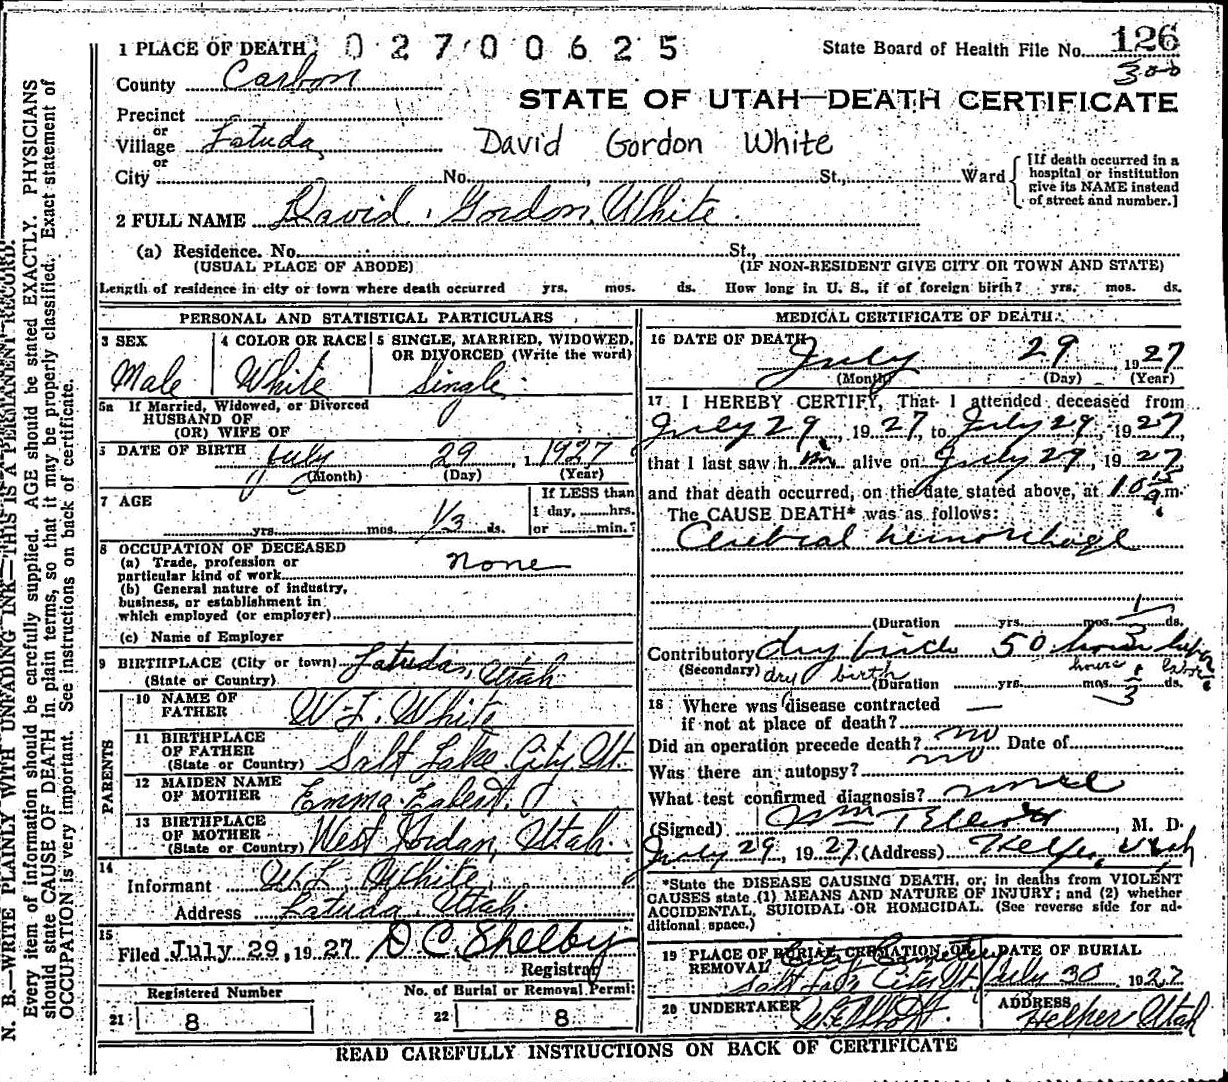 1 PLACE OF DEATH 0 2 7 0 0 6 2 5 State Board of Health File No. 126
County Carbon 300
STATE OF UTAH—DEATH CERTIFICATE
Precinct
or
Village Latuda, David Gordon White
or
City No. , St., Ward
[If death occurred in a
hospital or institution
give its NAME instead
of street and number.]
2 FULL NAME David Gordon White
(a) Residence. No. St.,
(USUAL PLACE OF ABODE) (IF NON-RESIDENT GIVE CITY OR TOWN AND STATE)
Length of residence in city or town where death occurred yrs. mos. ds. How long in U. S., if of foreign birth? yrs. mos. ds.
PERSONAL AND STATISTICAL PARTICULARS
3 SEX 4 COLOR OR RACE 5 SINGLE, MARRIED, WIDOWED,
OR DIVORCED (Write the word)
Male White Single
5a If Married, Widowed, or Divorced
HUSBAND OF
(OR) WIFE OF
DATE OF BIRTH July 29, 1927
(Month) (Day) (Year)
7 AGE yrs. mos. 1/3 ds.
If LESS than
1 day, hrs.
or min.?
8 OCCUPATION OF DECEASED
(a) Trade, profession or
particular kind of work none
(b) General nature of industry,
business, or establishment in
which employed (or employer)
(c) Name of Employer
9 BIRTHPLACE (City or town) Latuda, Utah
(State or Country)
PARENTS
10 NAME OF
FATHER W. L. White
11 BIRTHPLACE
OF FATHER
(State or Country) Salt Lake City Ut.
12 MAIDEN NAME
OF MOTHER Emma
13 BIRTHPLACE
OF MOTHER
(State or Country) West Jordan, Utah
14
Informant W. L. White
Address Latuda, Utah
15
Filed July 29, 1927 D C Shelby
Registrar
Registered Number No. of Burial or Removal Permit
21 8 22 8
MEDICAL CERTIFICATE OF DEATH
16 DATE OF DEATH July 29, 1927
(Month) (Day) (Year)
17 I HEREBY CERTIFY, That I attended deceased from
July 29, 1927, to July 29, 1927,
that I last saw him alive on July 29, 1927
and that death occurred, on the date stated above, at m.
The CAUSE DEATH* was as follows:
Cerebral hemorrhage
(Duration yrs. mos. 1/3 ds.
Contributory dry birth 50 hours labor
(Secondary) dry birth hours labor
(Duration yrs. mos. 1/3 ds.
18 Where was disease contracted
if not at place of death? —
Did an operation precede death? no Date of
Was there an autopsy? no
What test confirmed diagnosis?
(Signed) Wm T Elliott, M. D.
July 29, 1927 (Address) Helper, Utah
*State the DISEASE CAUSING DEATH, or, in deaths from VIOLENT
CAUSES state (1) MEANS AND NATURE OF INJURY; and (2) whether
ACCIDENTAL, SUICIDAL OR HOMICIDAL. (See reverse side for ad-
ditional space.)
19 PLACE OF BURIAL, CREMATION, OR
REMOVAL City Cemetery
Salt Lake City Ut.
DATE OF BURIAL
July 30 1927
20 UNDERTAKER
ADDRESS
Helper Utah
READ CAREFULLY INSTRUCTIONS ON BACK OF CERTIFICATE
N. B.—WRITE PLAINLY WITH UNFADING INK—THIS IS A PERMANENT RECORD.
Every item of information should be carefully supplied. AGE should be stated EXACTLY. PHYSICIANS
should state CAUSE OF DEATH in plain terms, so that it may be properly classified. Exact statement of
OCCUPATION is very important. See instructions on back of certificate.